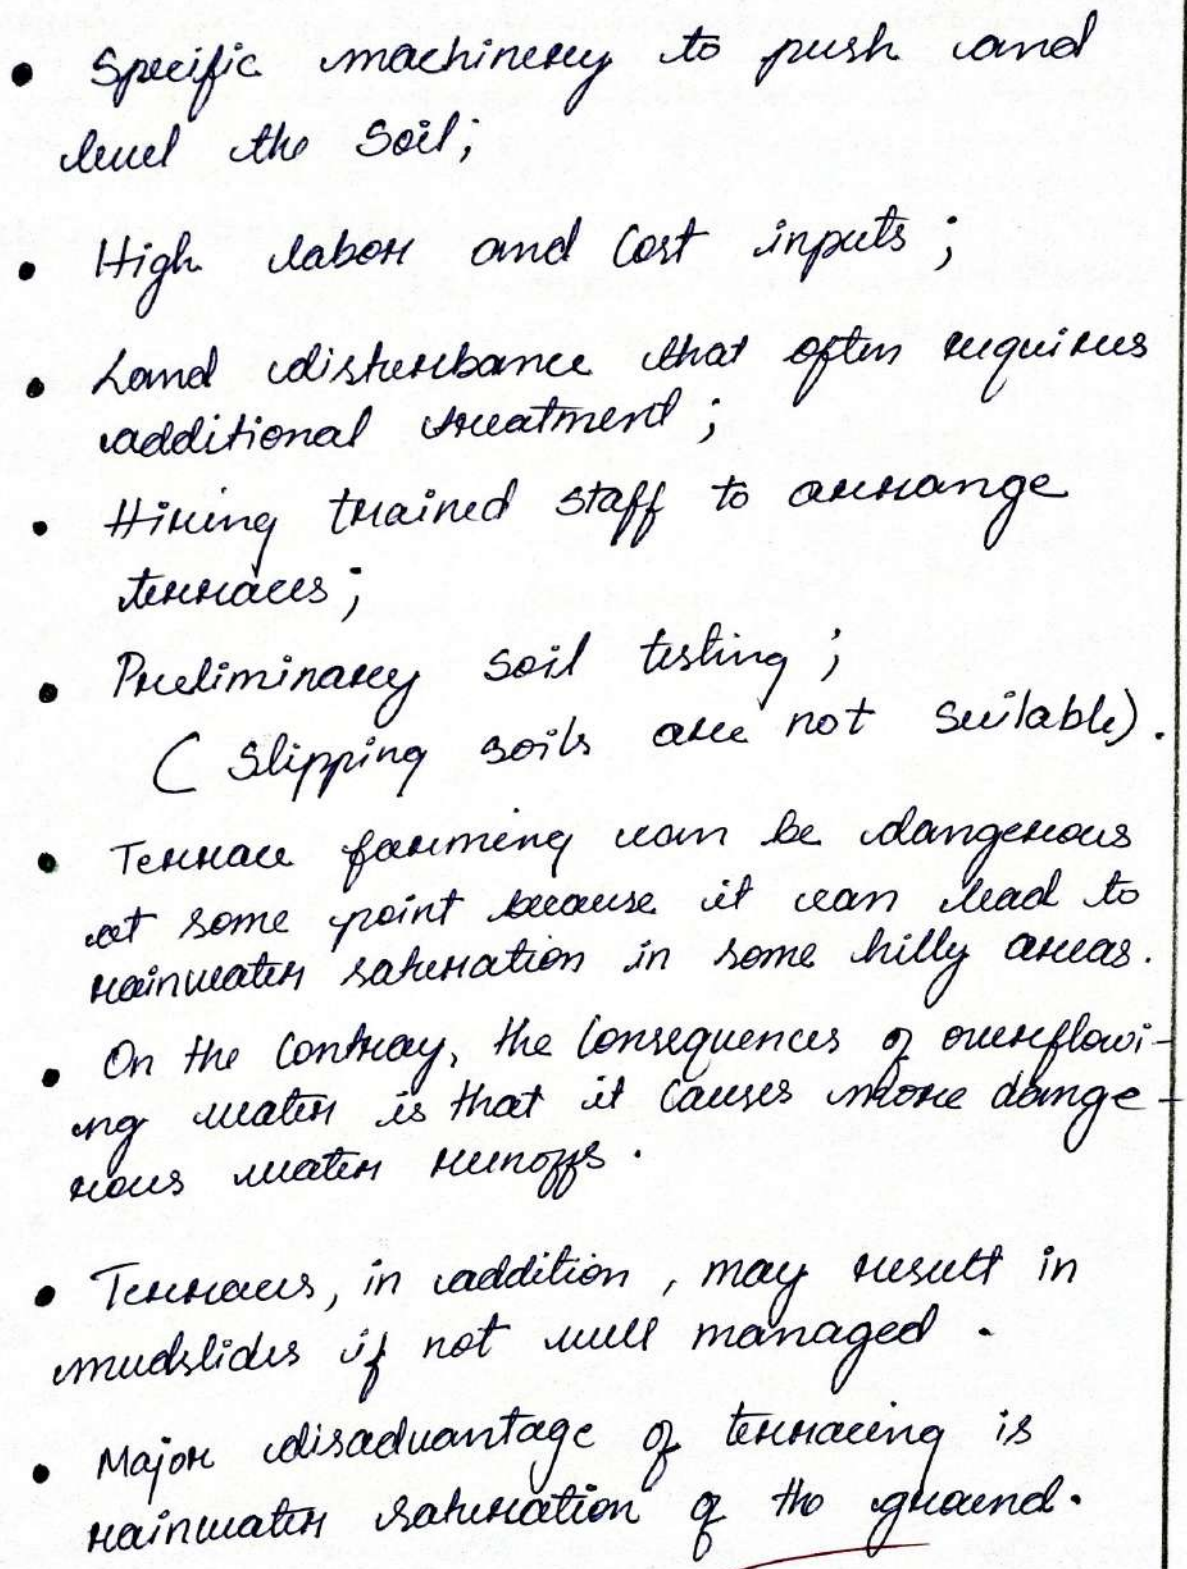 • Specific machinery to push and
level the soil;
• High labor and cost inputs ;
• Land disturbance that often requires
additional treatment ;
• Hiring trained staff to arrange
terraces ;
• Preliminary soil testing ;
( Slipping soils are not suitable) .
• Terrace farming can be dangerous
at some point because it can lead to
rainwater saturation in some hilly areas.
• On the Contray, the Consequences of overflowi-
ng water is that it causes more dange-
rous water runoffs .
• Terraces, in addition , may result in
mudslides if not well managed .
• Major disadvantage of terracing is
rainwater saturation of the ground.